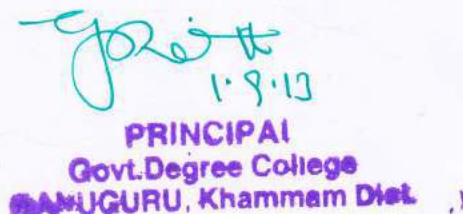 1.9.13
PRINCIPAL
Govt.Degree College
MANUGURU, Khammam Dist.